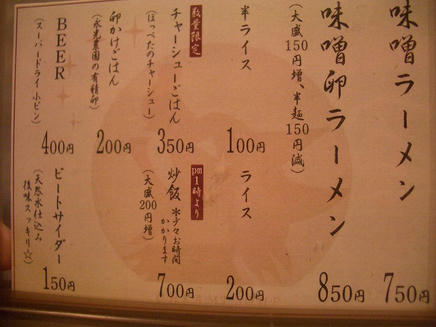 味噌ラーメン 750円
味噌卵ラーメン 850円
(大盛150円増、半麺150円減)
半ライス 100円
ライス 200円
数量限定
チャーシューごはん 350円
(ほっぺたのチャーシュー)
pm1時より
炒飯 700円
※少々お時間かかります
(大盛200円増)
卵かけごはん 200円
(水光農園の有精卵)
BEER 400円
(スーパードライ小ビン)
ビートサイダー 150円
(天然水仕込み
後味スッキリ☆)